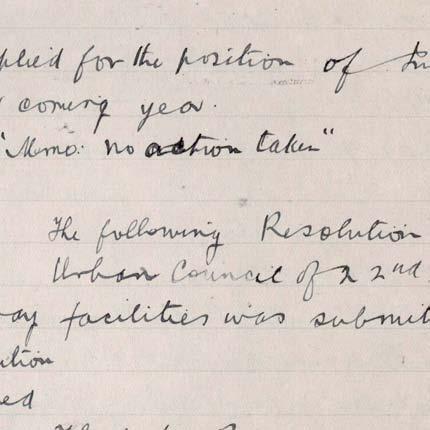 plied for the position of
coming year.
"Memo: no action taken"
The following Resolution
Urban Council of 22nd
way facilities was submit
ution
ed